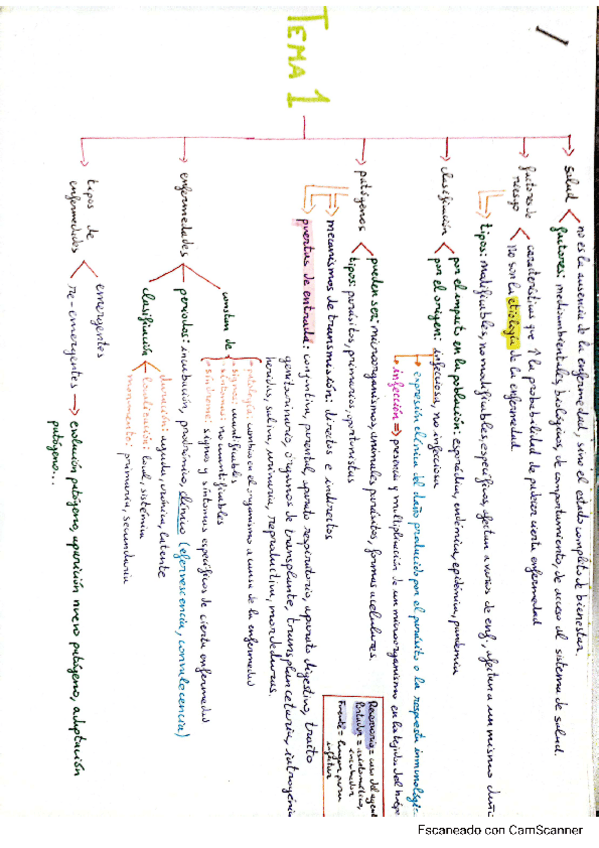 TEMA 1
salud
no es la ausencia de la enfermedad, sino el estado completo de bienestar.
factores: medioambientales, biológicos, de comportamiento, de acceso al sistema de salud.
factores de
riesgo
características que ↑ la probabilidad de padecer cierta enfermedad
No son la etiología de la enfermedad
tipos: modificables, no modificables, específicos, afectan a varias de enf, afectan a un mismo
clasificación
por el impacto en la población: esporádica, endémica, epidémia, pandemia
por el origen: infecciosa, no infecciosa
expresión clínica del daño producido por el parásito o la respuesta inmunológic
infección ⇒ presencia y multiplicación de un microorganismo en los tejidos del
patógenos
pueden ser: microorganismos, animales parásitos, formas acelulares.
tipos: parásitos, primarios, oportunistas
mecanismos de transmisión: directos e indirectos
puertas de entrada: conjuntiva, parental, aparato respiratorio, aparato digestivo, tracto
genitourinario, órganos de transplante, transplancetaria, iatrogénic
heridas, saliva, urinaria, reproductiva, mordeduras.
Reservorio = casa del agent
Portador = asintomático,
incubador
Fuente = lugar para
enfermedades
constan de
patología: cambios en el organismo a causa de la enfermedad
signos: cuantificables
síntomas: no cuantificables
síndrome: signos y síntomas específicos de cierta enfermedad
periodos: incubación, prodrómico, clínico (efervescencia, convalecencia)
clasificación
duración: aguda, crónica, latente
localización: local, sistémica
momento: primaria, secundaria
tipos de
enfermedades
emergentes
re-emergentes → evolución patógeno, aparición nuevo patógeno, adaptación
patógeno...
Escaneado con CamScanner